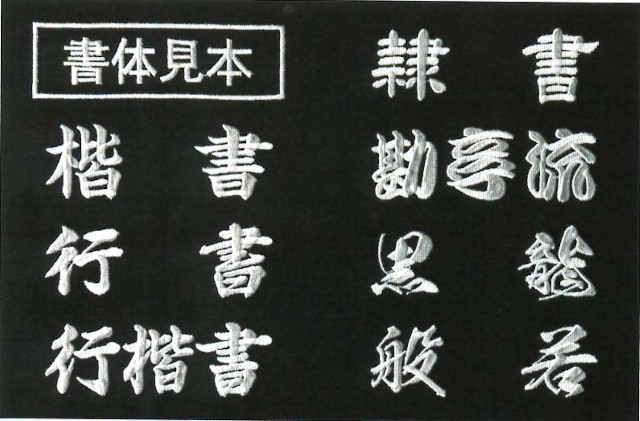 書体見本
楷書
行書
行楷書
隷書
勘亭流
黒龍
般若